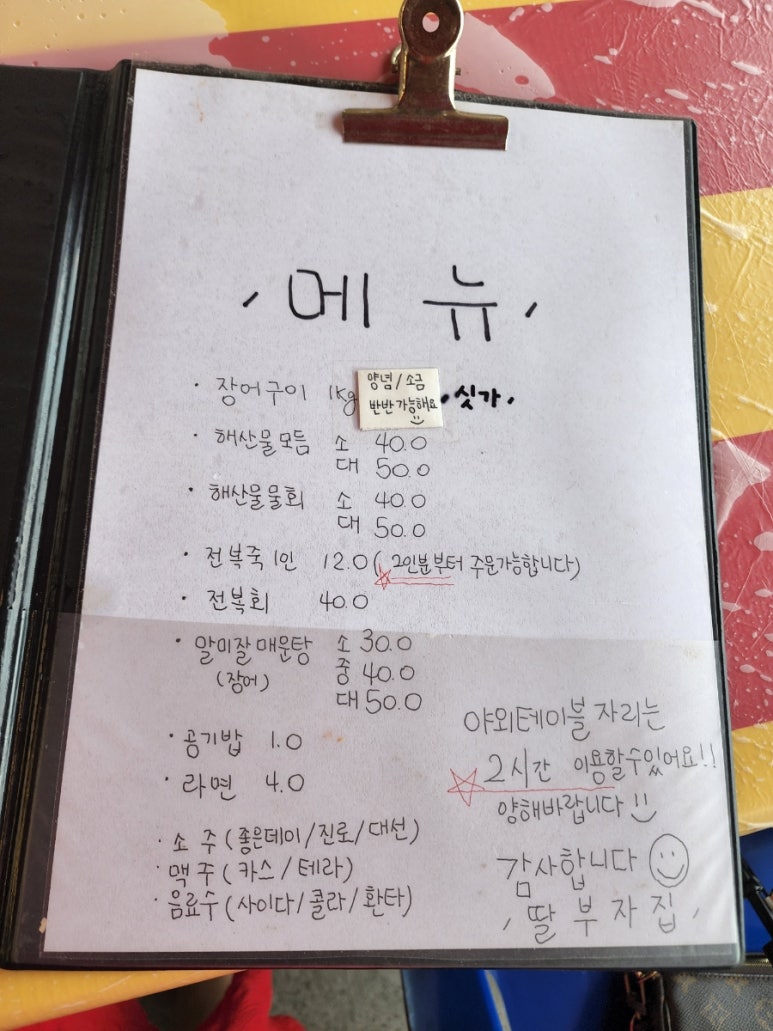 메뉴
· 장어구이 1kg 양념/소금 반반가능해요 · 싯가 ·
· 해산물모듬 소 40.0
대 50.0
· 해산물물회 소 40.0
대 50.0
· 전복죽 1인 12.0 (☆2인분부터 주문가능합니다)
· 전복회 40.0
· 말미잘매운탕 소 30.0
(장어) 중 40.0
대 50.0
· 공기밥 1.0
· 라면 4.0
· 소주 (좋은데이/진로/대선)
· 맥주 (카스/테라)
· 음료수 (사이다/콜라/환타)
야외테이블 자리는
☆2시간 이용할수있어요!!
양해바랍니다
감사합니다
딸부자집